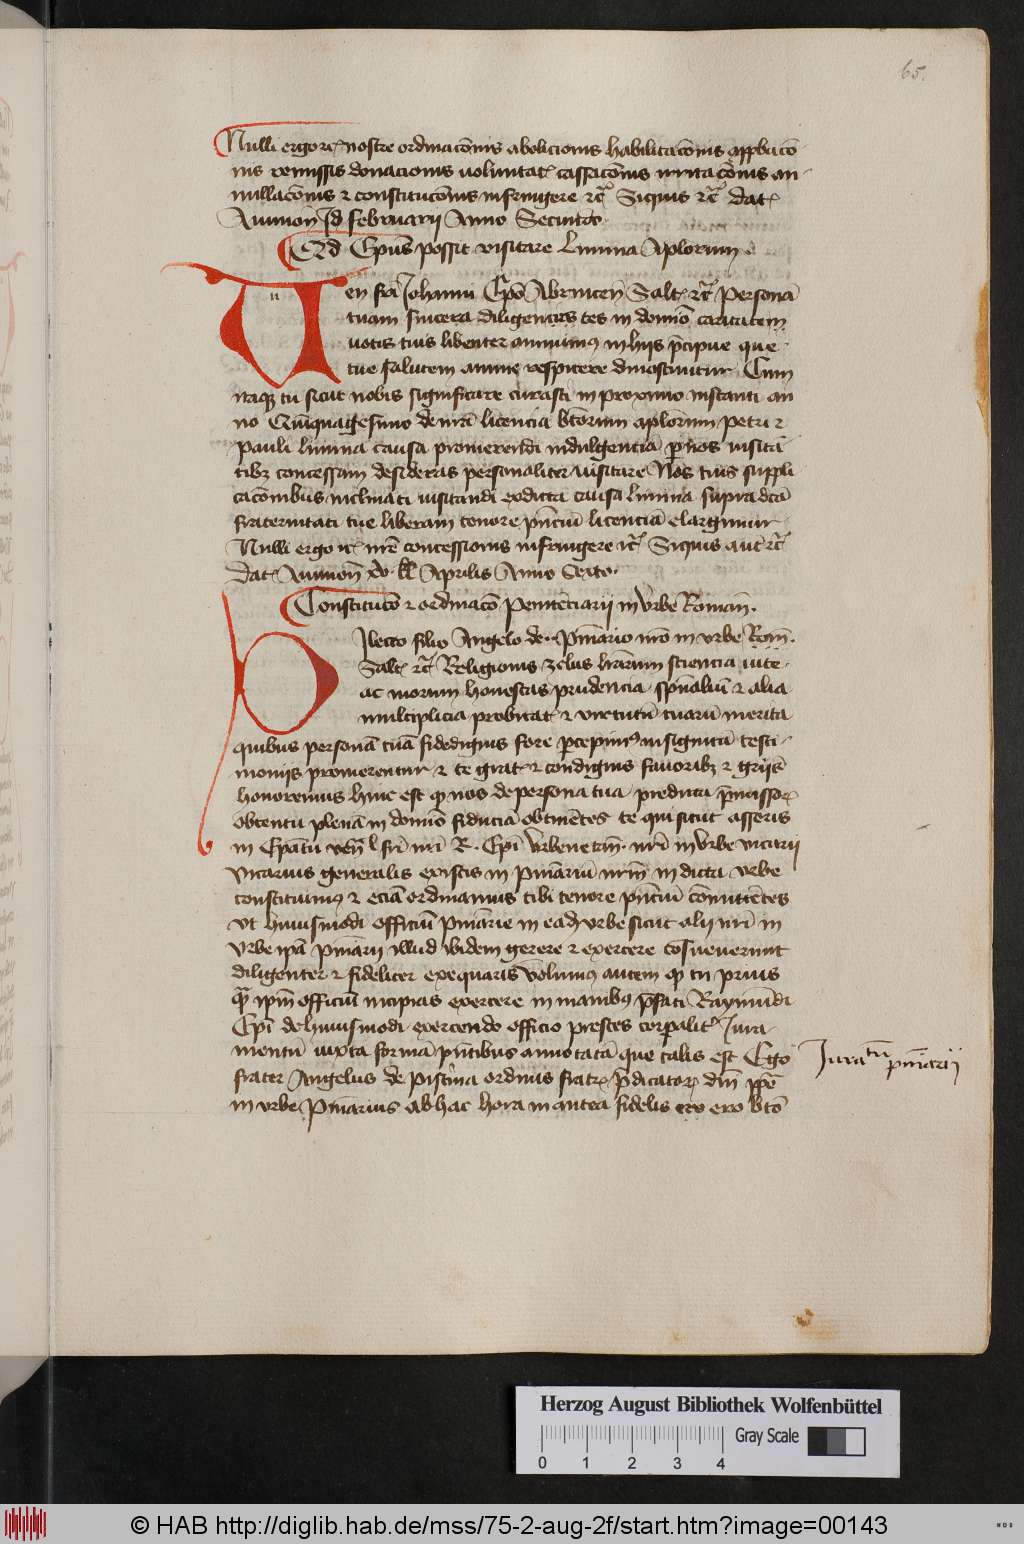 65.
Nulli ergo rc̄ nostre ordinacōnis abolicionis habilitacōnis approbacō
nis remissis donacionis uoluntat cassacōnis irritacōnis an
nullacōnis ⁊ constitucōnis infringere ⁊c̄ Siquis ⁊c̄ Dat
Auinion Id februarij Anno Secundo
Qd Ep̄us possit visitare Limina Apl̄orum
Uen fr̄i Johanni Ep̄o Abrincen̄ Salt ⁊c̄ Personā
tuam sincera diligentes in domino caritatem
uotis tuis libenter annuimus in hijs p̄cipue que
tue salutem anime respicere dinoscuntur Cum
itaq̄ tu sicut nobis significare curasti in proximo instanti an
no Quinquagesimo de nr̄a licencia bt̄orum apl̄orum petri ⁊
Pauli limina causa promerendi indulgenciā p̄ nos uisitā
tibꝫ concessam desideras personaliter uisitare Nos tuis suppli
cacōnibus inclinati uisitandi ex dicta causa limina supradc̄a
fraternitati tue liberam tenore pn̄ciū licenciā elargimur
Nulli ergo ⁊c̄ nr̄e concessionis infringere ⁊c̄ Siquis aut ⁊c̄
Dat Auinion̄ xv kl̄ Aprilis Anno Sexto
Constitucō ⁊ ordinacō Penitēciarij in Vrbe Roman̄
Dilecto filio Angelo de .. Pn̄iario nr̄o in vrbe Rom̄
Salt ⁊c̄ Religionis zelus lr̄arum sciencia uite
ac morum honestas prudencia spūalium ⁊ alia
multiplicia probitat ⁊ virtutū tuarū merita
quibus personā tuā fidedignis fore p̄cepimꝰ insignitā testi
monijs promerentur ⁊ te grat ⁊ condignis fauoribꝫ ⁊ gr̄ijs
honoremus hinc est qꝫ nos de persona tua predictū p̄missoꝝ
obtentu plenā in domino fiduciā obtinētes te qui sicut asseris
in Ep̄atu ven̄ fr̄i nr̄i R. Ep̄i Vrbenetan̄ nr̄i in vrbe uicarij
Vicarius generalis existis in pn̄iariū nr̄m in dicta vrbe
constituimꝰ ⁊ eciā ordinamus tibi tenore pn̄ciū cōmittētes
vt huiusmodi officiū pn̄iarie in eadꝫ vrbe sicut alij nr̄i in
Vrbe ip̄a pn̄iarij illud ibidem gerere ⁊ exercere cōsueuerunt
diligenter ⁊ fideliter exequaris Volumꝰ autem qꝫ tu prius
q̄ ip̄m officiū incipias exercere in manibꝰ p̄fati Raymūdi
Ep̄i de huiusmodi exercendo officio prestes corporalit Jura
mentū iuxta formā pn̄tibus annotatā que talis est Ego
frater Angelus de Piscina ordinis fratꝝ p̄dicatoꝝ dn̄i pp̄e
in vrbe pn̄iarius ab hac hora in antea fidelis ero bt̄o
Juratū pn̄iarij
Herzog August Bibliothek Wolfenbüttel
Gray Scale
0 1 2 3 4
© HAB http://diglib.hab.de/mss/75-2-aug-2f/start.htm?image=00143